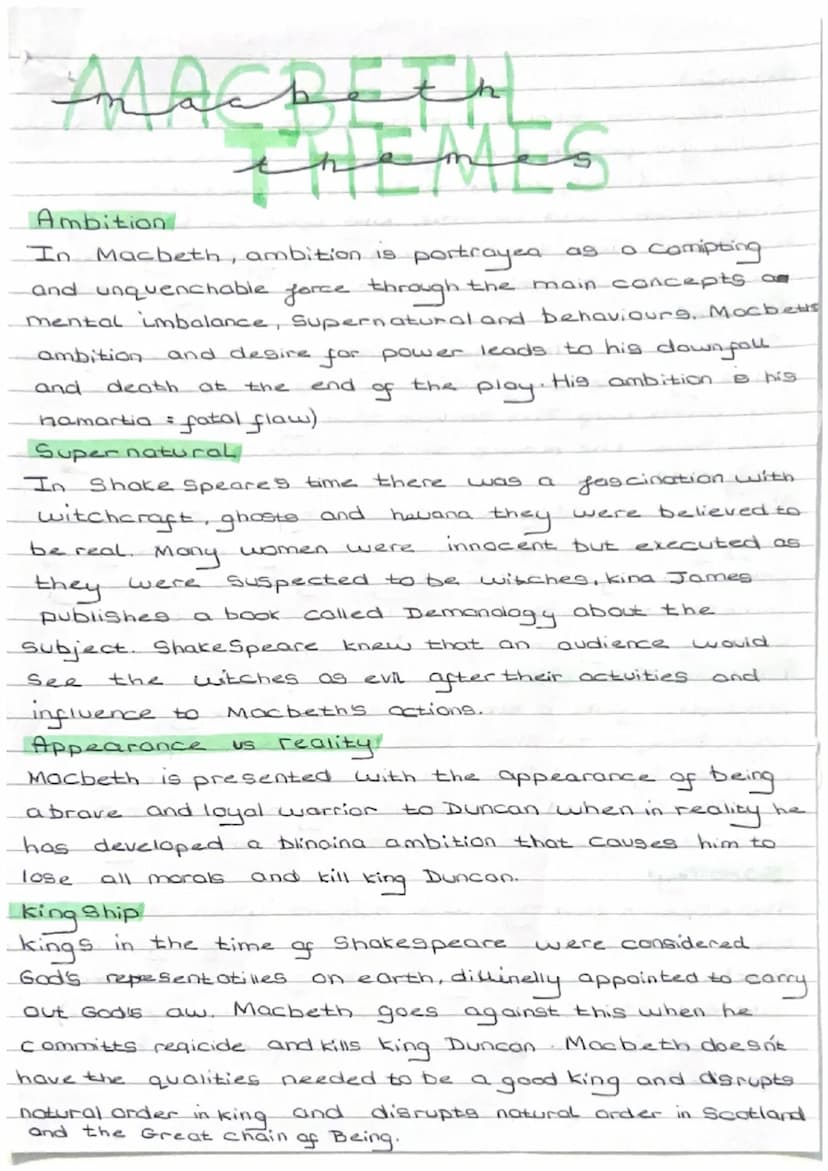 MACBETH
macbeth
THEMES
themes
Ambition
In Macbeth, ambition is portrayed as a corrupting
and unquenchable force through the main concepts
mental imbalance, supernatural and behaviours. Macbeth's
ambition and desire for power leads to his downfall
and death at the end of the play. His ambition is his
hamartia = fatal flaw)
Supernatural
In Shakespeare's time there was a fascination with
witchcraft, ghosts and they were believed to
be real. Many women were innocent but executed as
they were suspected to be witches, king James
publishes a book called Demonology about the
subject. Shakespeare knew that an audience would
see the witches as evil after their activities and
influence to Macbeth's actions.
Appearance vs reality
Macbeth is presented with the appearance of being
a brave and loyal warrior to Duncan when in reality he
has developed a blinding ambition that causes him to
lose all morals and kill king Duncan.
kingship
kings in the time of Shakespeare were considered
God's representatives on earth, appointed to carry
out God's aw. Macbeth goes against this when he
committs regicide and kills king Duncan. Macbeth doesn't
have the qualities needed to be a good king and disrupts
natural order in king and disrupts natural order in Scotland
and the Great chain of Being.